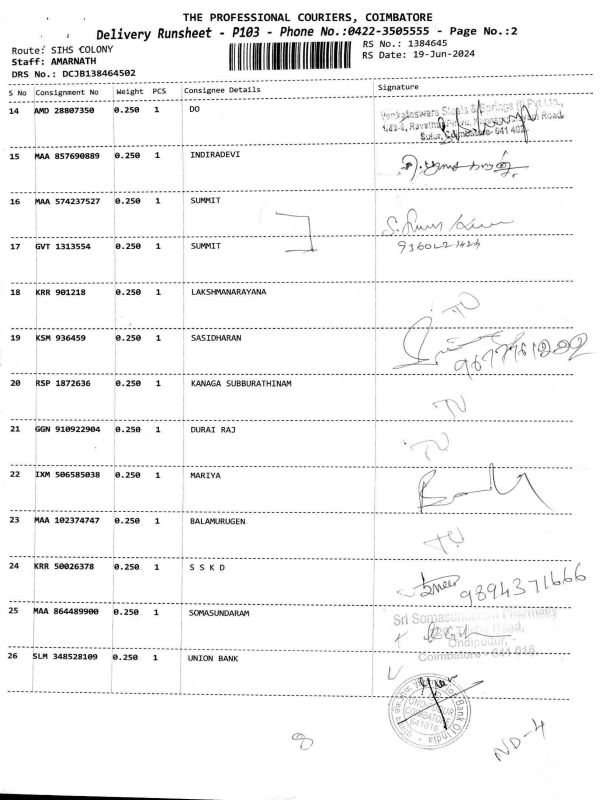 THE PROFESSIONAL COURIERS, COIMBATORE
Delivery Runsheet - P103 - Phone No.:0422-3505555 - Page No.:2
Route: SIHS COLONY RS No.: 1384645
Staff: AMARNATH RS Date: 19-Jun-2024
DRS No.: DCJB138464502
S No Consignment No Weight PCS Consignee Details Signature
14 AMD 28807350 0.250 1 DO
Venkateswara Steels & Springs (I) Pvt Ltd.,
Sulur, Coimbatore- 641 402
15 MAA 857690889 0.250 1 INDIRADEVI
16 MAA 574237527 0.250 1 SUMMIT
17 GVT 1313554 0.250 1 SUMMIT
18 KRR 901218 0.250 1 LAKSHMANARAYANA
19 KSM 936459 0.250 1 SASIDHARAN
20 RSP 1872636 0.250 1 KANAGA SUBBURATHINAM
21 GGN 910922904 0.250 1 DURAI RAJ
22 IXM 506585038 0.250 1 MARIYA
23 MAA 102374747 0.250 1 BALAMURUGEN
24 KRR 50026378 0.250 1 S S K D
9894371666
25 MAA 864489900 0.250 1 SOMASUNDARAM
Sri Somasundaram Pharmacy
Road,
Ondipudur,
Coimbatore - 641 016
26 SLM 348528109 0.250 1 UNION BANK
Bank Of India
COIMBATORE
641016
8
ND-4